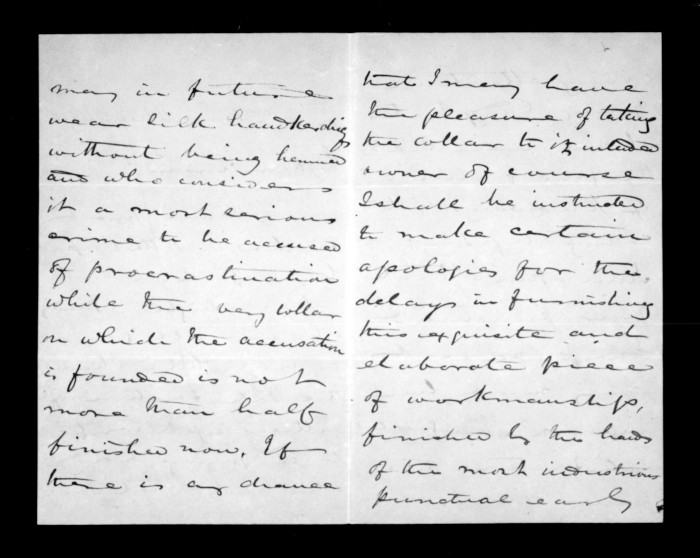 may in future
wear silk handkerchiefs
without being hemmed
and who considers
it a most serious
crime to be accused
of procrastination
while the very collar
on which the accusation
is founded is not
more than half
finished now. If
there is any chance
that I may have
the pleasure of taking
the collar to its intended
owner of course
I shall be instructed
to make certain
apologies for the
delays in furnishing
this exquisite and
elaborate piece
of workmanship,
finished by the hands
of the most industrious
punctual early